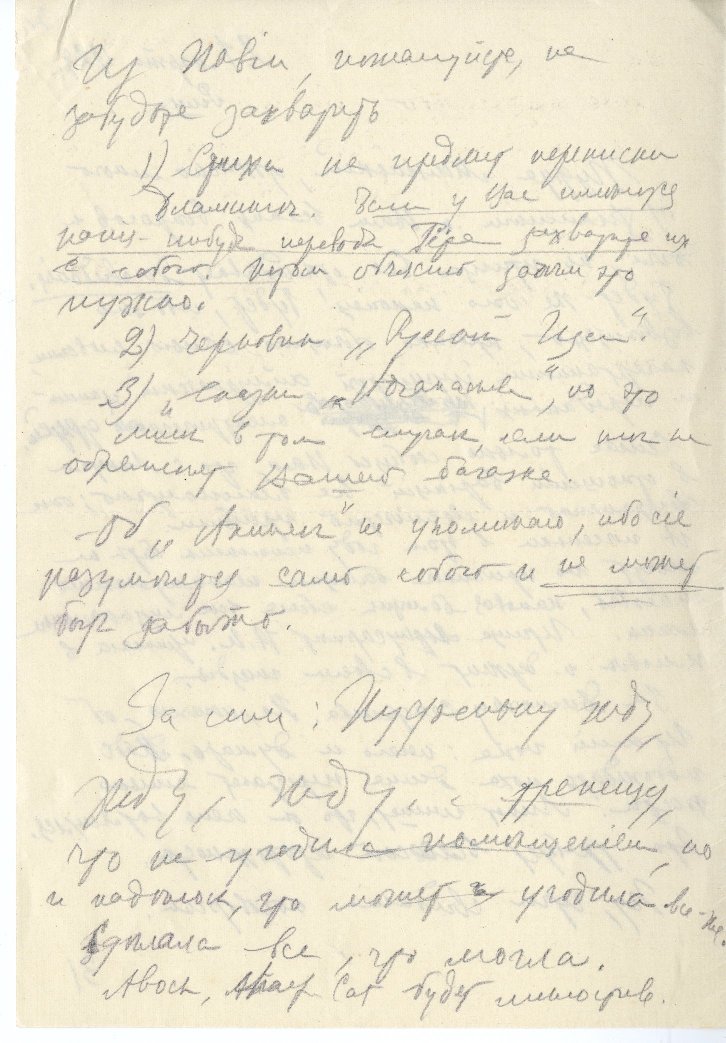 Из Павіи, пожалуйста, не
забудьте захватить
1) Стихи не предмет переписки
Если у Вас имеются
какие-нибудь переводы захватите их
с собою. объясню зачем это
нужно.
2) Черновик „Русской
3) но это
лишь в том случае, если они не
обременят Вашего багажа.
Об не упоминаю, ибо сіе
разумеется само собою и не может
быть забыто.
За сим: жду,
жду, жду, трепещу,
что не угодила помещеніем, но
и надеюсь, что может и угодила все-же.
Сделала все, что могла.
Авось, будет милостив.